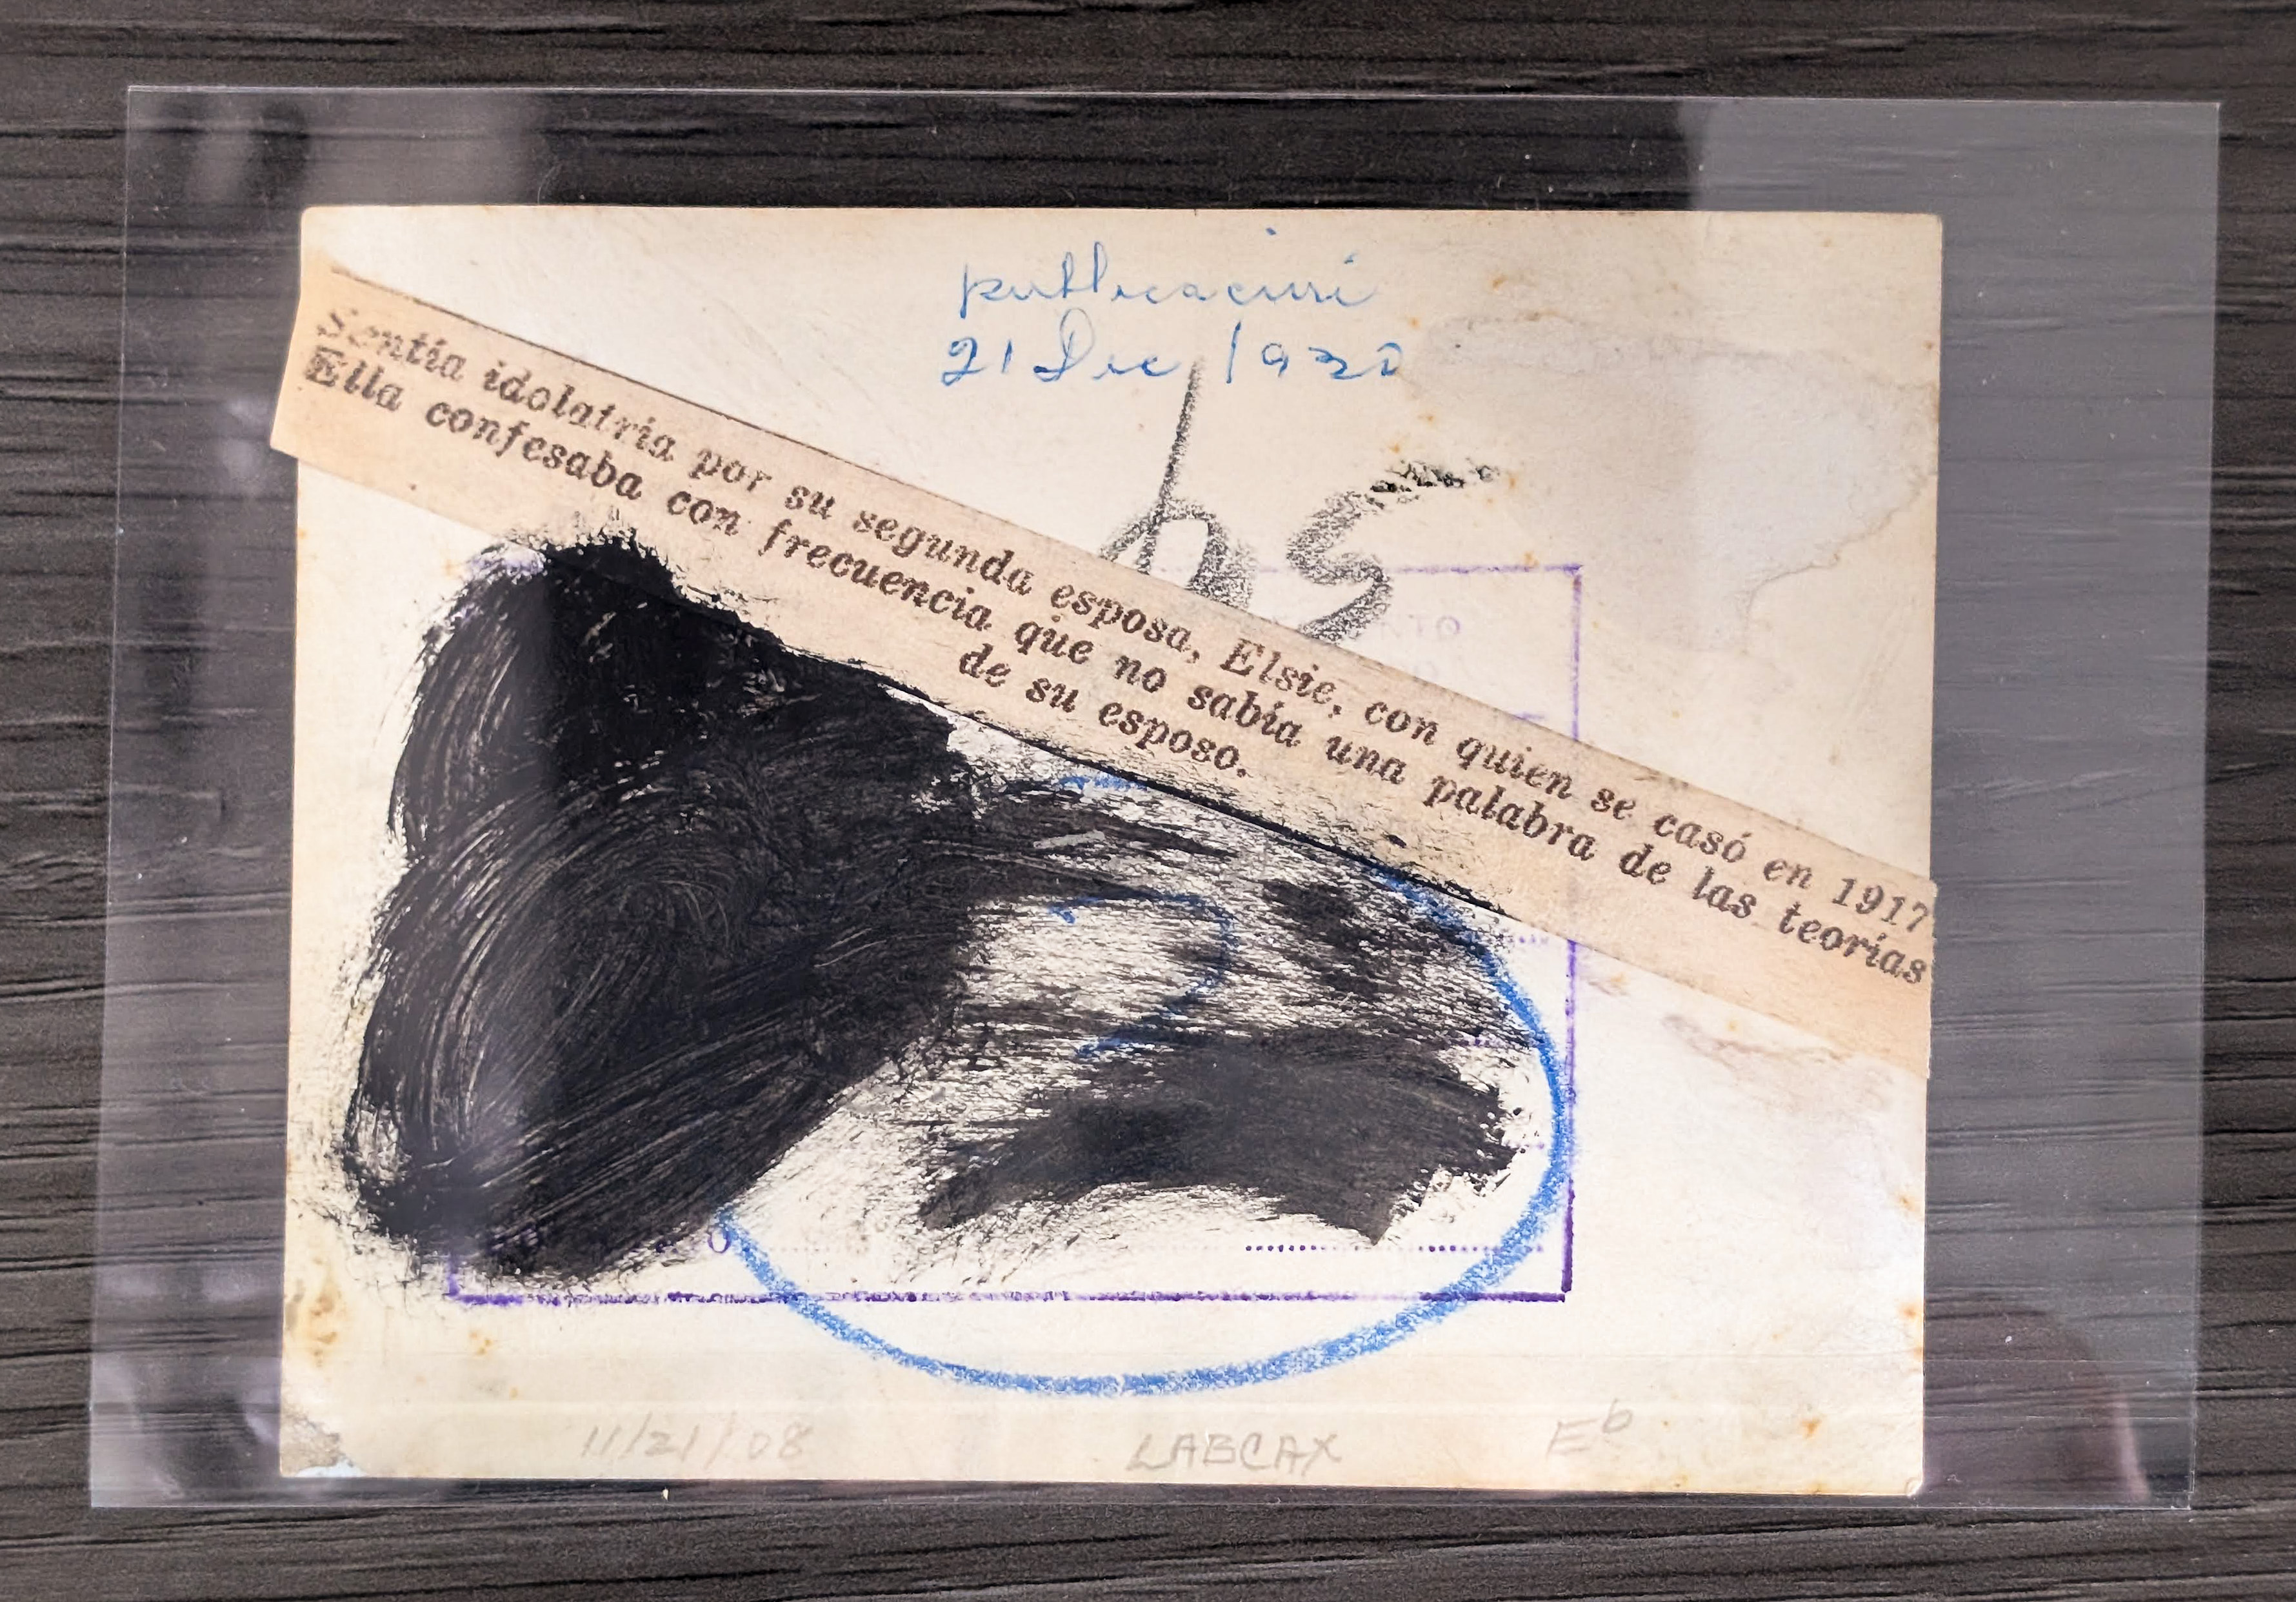 publicacion
21 Dec 1930
Sentía idolatria por su segunda esposa, Elsie, con quien se casó en 1917
Ella confesaba con frecuencia que no sabía una palabra de las teorías
de su esposo.
11/21/08 LABCAX Eb